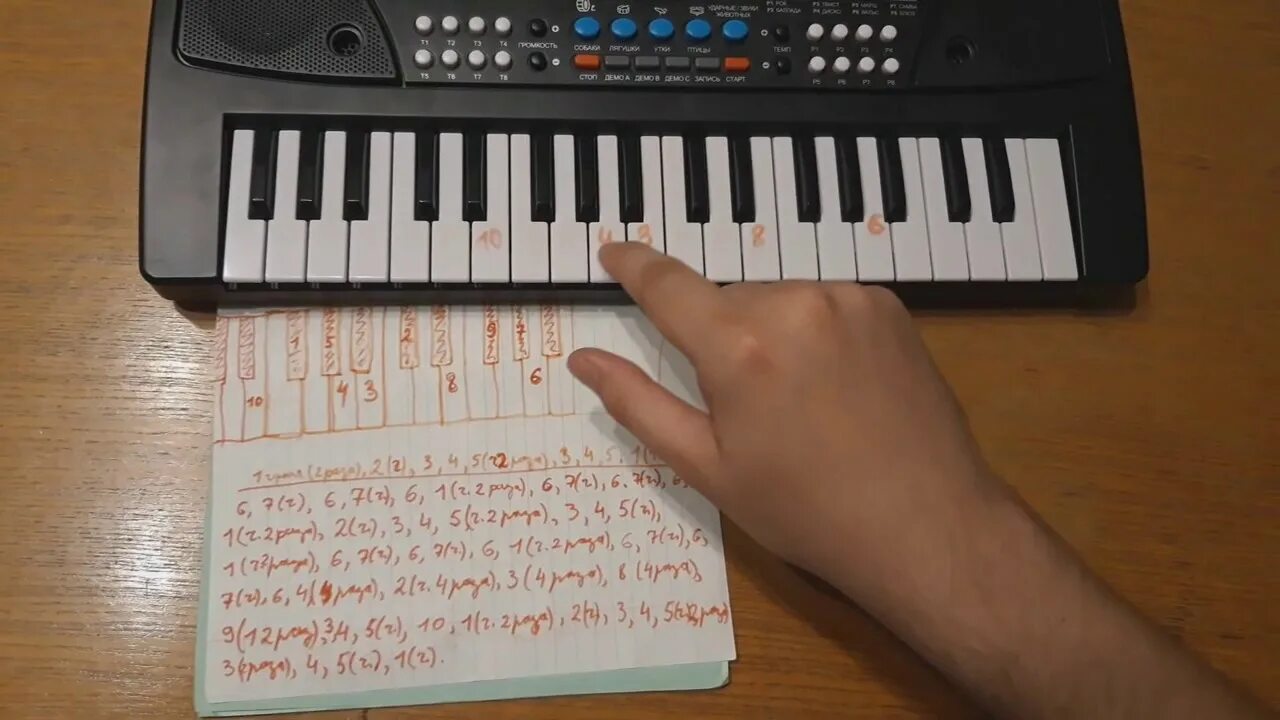 УДАРНЫЕ / ЗВУКИ
ЖИВОТНЫХ
T1 T2 T3 T4
ГРОМКОСТЬ
+
СОБАКИ ЛЯГУШКИ УТКИ ПТИЦЫ
+
ТЕМП
P1 P2 P3 P4
T5 T6 T7 T8
−
СТОП ДЕМО A ДЕМО B ДЕМО C ЗАПИСЬ СТАРТ
−
P5 P6 P7 P8
10 4 3 8 6
1 5 2 9 7
10 4 3 8 6
1 (2 раза), 2(ч), 3, 4, 5(ч2 раза), 3, 4, 5, 1(
6, 7(ч), 6, 7(ч), 6, 1(ч.2 раза), 6, 7(ч), 6, 7(ч), 6,
1(ч.2 раза), 2(ч), 3, 4, 5(ч.2 раза), 3, 4, 5(ч),
1(ч2раза), 6, 7(ч), 6, 7(ч), 6, 1(ч.2 раза), 6, 7(ч), 6,
7(ч), 6, 4( раза), 2(ч.4 раза), 3(4 раза), 8(4 раза),
9(12 раз), 3,4, 5(ч), 10, 1(ч.2 раза), 2(ч), 3, 4, 5(ч2 раза)
3( раза), 4, 5(ч), 1(ч).